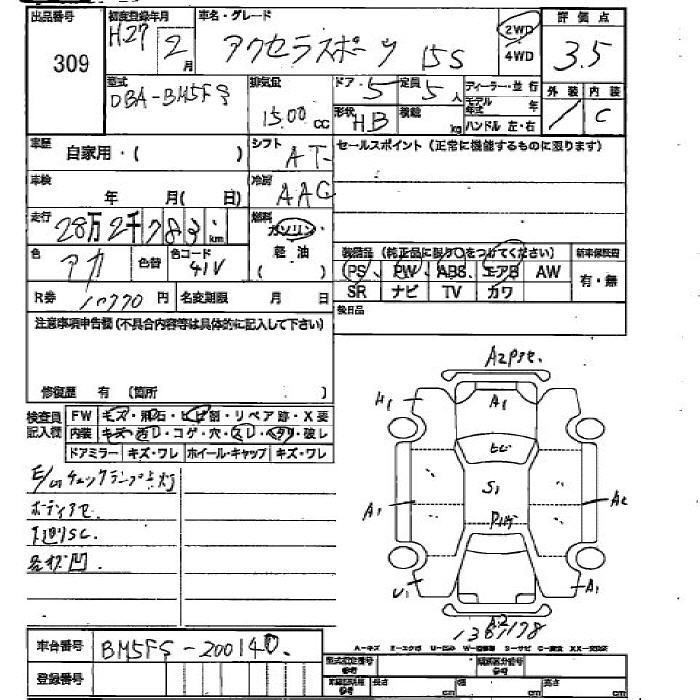 出品番号 初度登録年月 車名・グレード 評価点
309 H27 2月 アクセラスポーツ 15S 2WD 4WD 3.5
型式 排気量 ドア・5 定員 5人 ディーラー・並行 外装 内装
DBA-BM5FS 1500cc 形状 HB 積載 kg モデル年式 年 ハンドル 左・右 C
車歴 自家用・( ) シフト AT セールスポイント (正常に機能するものに限ります)
車検 年 月( 日) 冷房 AAC
走行 28万2千783km 燃料 ガソリン 軽油 ( )
装備品 (純正品に限り○をつけてください) 新車保証書
色 アカ 色替 色コード 41V PS、PW、ABS、エアB AW 有・無
SR ナビ TV カワ
R券 10770円 名変期限 月 日 後日品
注意事項申告欄(不具合内容等は具体的に記入して下さい)
修復歴 有 (箇所 )
検査員記入欄 FW キズ・飛石・ヒビ割・リペア跡・X要
内装 キズ・汚レ・コゲ・穴・スレ・ヘタリ・破レ
ドアミラー キズ・ワレ ホイール・キャップ キズ・ワレ
E/Gチェックランプ点灯
下廻りSC
A1
A1
S1
U1
A1
A2
車台番号 BM5FS-200140
登録番号
型式指定番号 参考 類別区分番号 参考
長さ cm 幅 cm 高さ cm